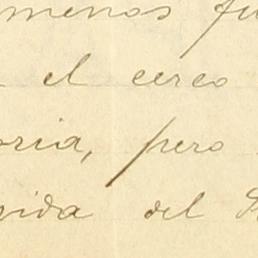 menos fu
el cerco
oria, pero
rida del